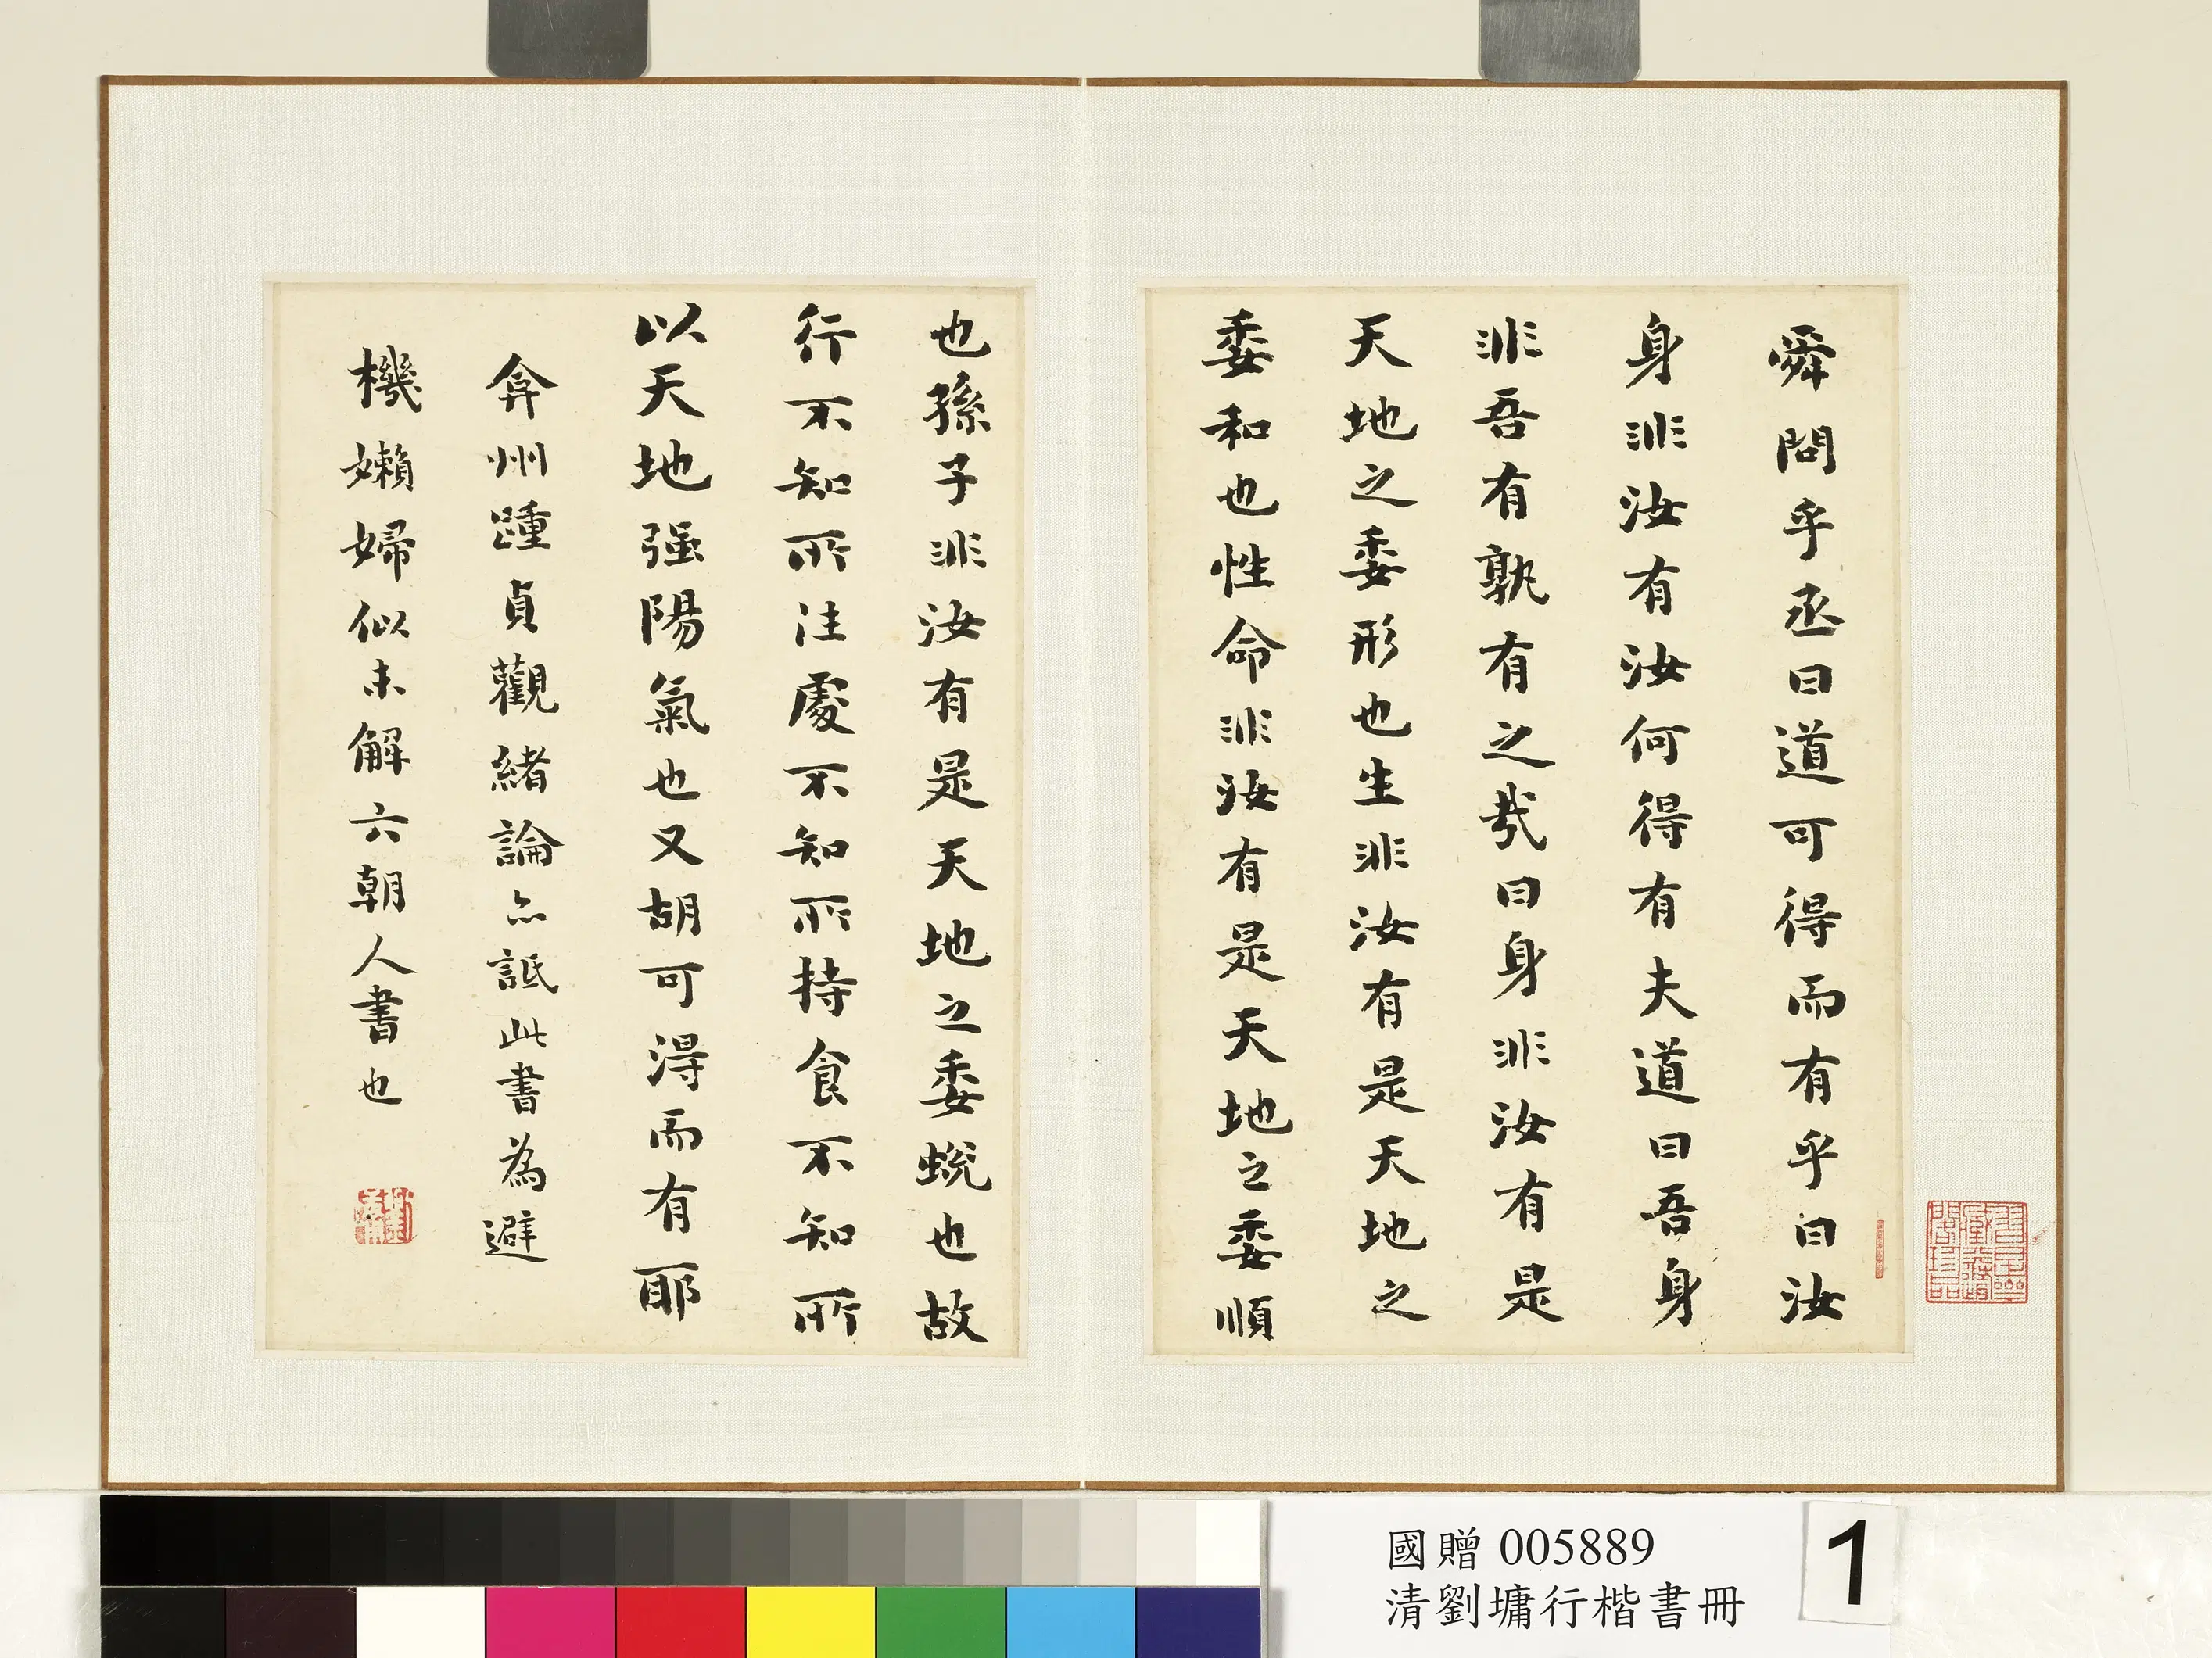 舜問乎丞曰道可得而有乎曰汝
身非汝有汝何得有夫道曰吾身
非吾有孰有之哉曰身非汝有是
天地之委形也生非汝有是天地之
委和也性命非汝有是天地之委順
也孫子非汝有是天地之委蛻也故
行不知所往處不知所持食不知所
以天地强陽氣也又胡可淂而有耶
弇州踵貞觀緒論亦詆此書為避
機嬾婦似未解六朝人書也
國贈 005889
清劉墉行楷書冊
1